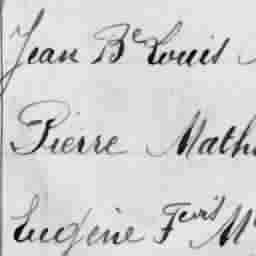 Jean Bte Louis
Pierre Math
Eugène Fcois M